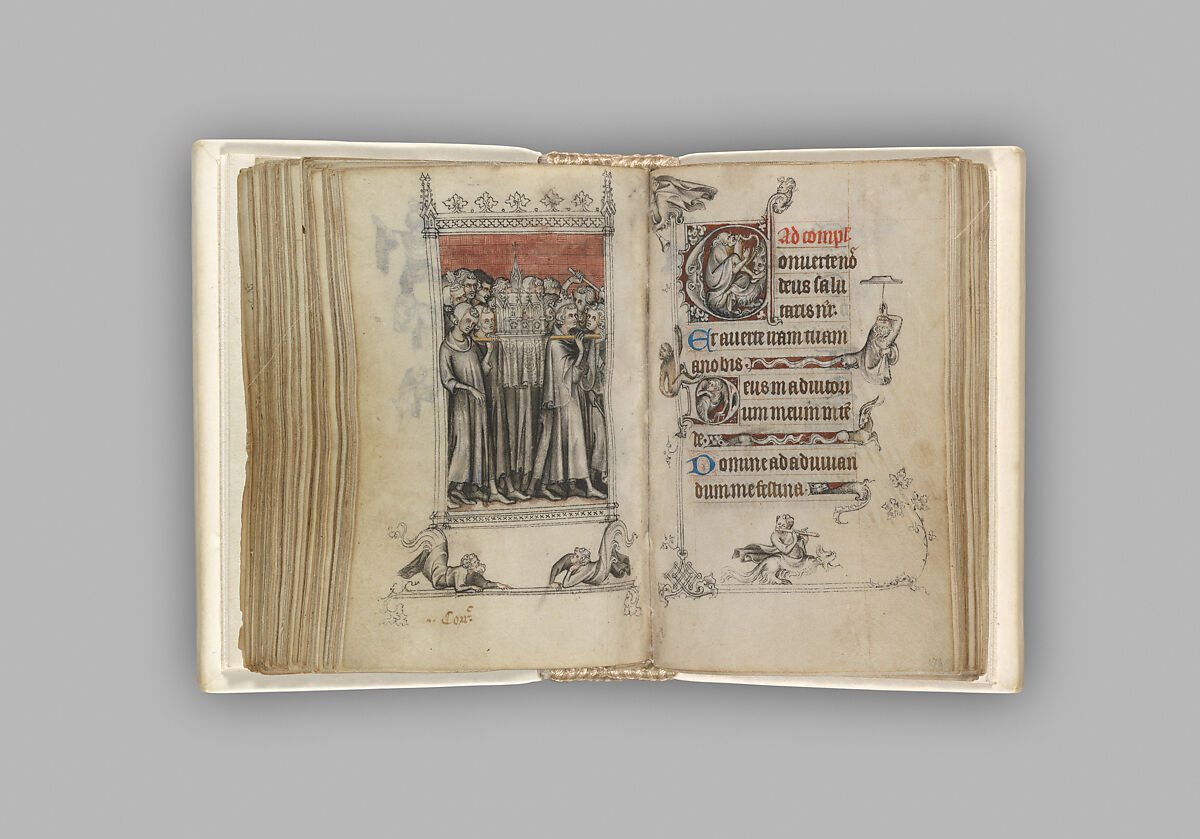 Con͛.
Ad compl͛.
Conuerte nō
deus salu
taris nr̄.
Et auerte iram tuam
a nobis.
Deus in adiutori
um meum intē
de.
Domine ad adiuuan
dum me festina.